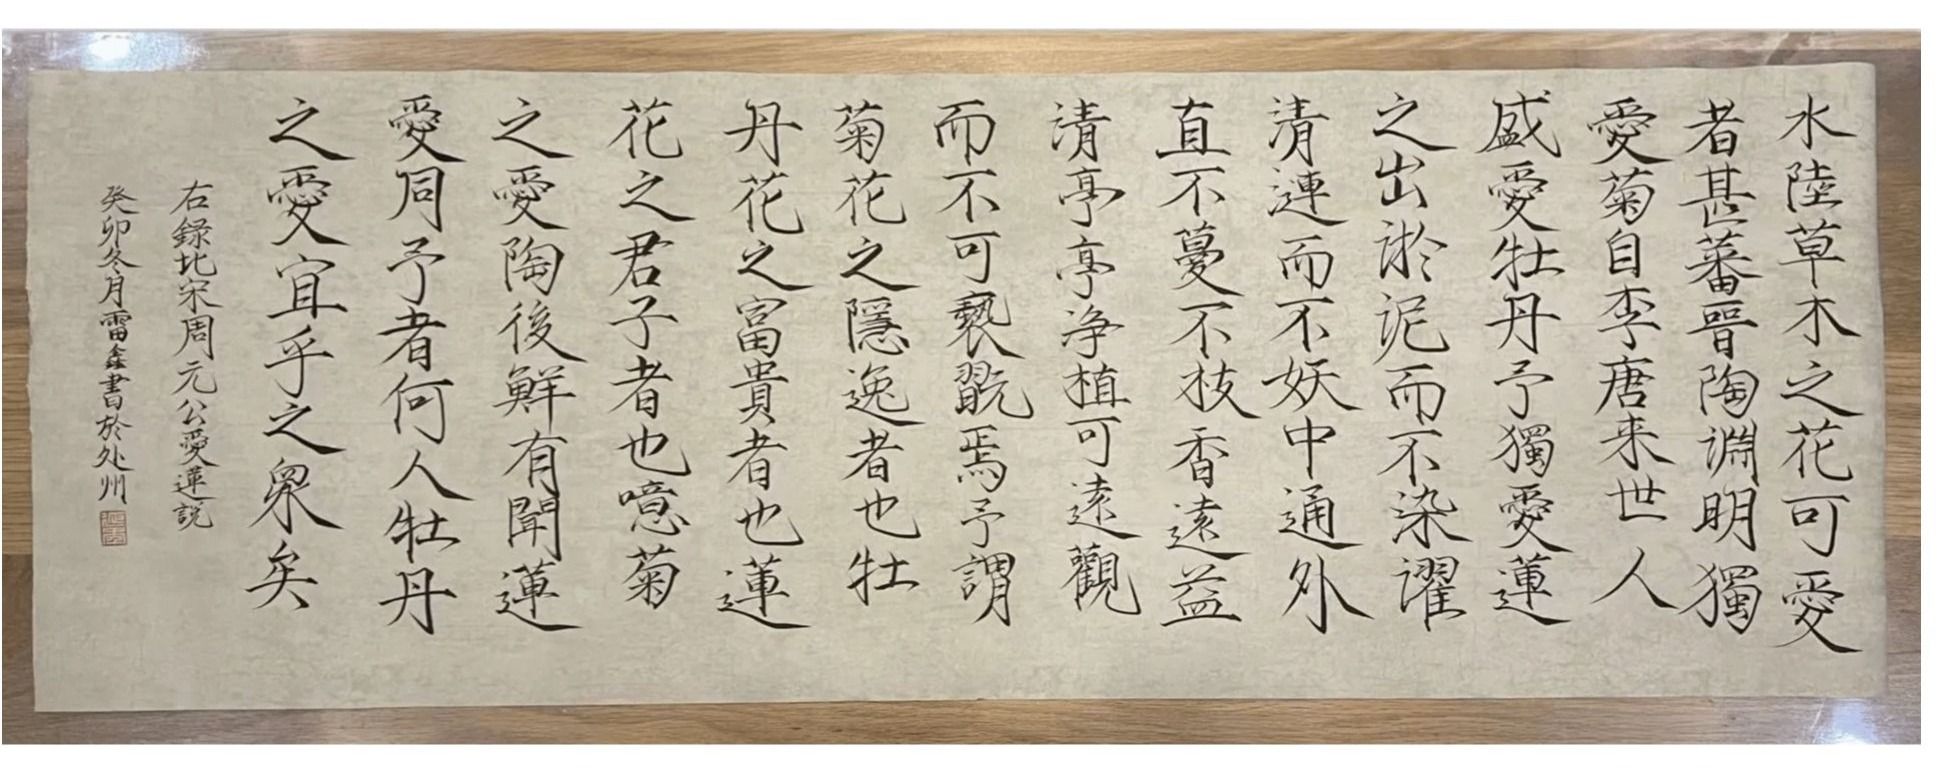 水陸草木之花可愛
者甚蕃晉陶淵明獨
愛菊自李唐来世人
盛愛牡丹予獨愛蓮
之出淤泥而不染濯
清漣而不妖中通外
直不蔓不枝香遠益
清亭亭净植可遠觀
而不可褻翫焉予謂
菊花之隱逸者也牡
丹花之富貴者也蓮
花之君子者也噫菊
之愛陶後鮮有聞蓮
愛同予者何人牡丹
之愛宜乎之眾矣
右録北宋周元公愛蓮説
癸卯冬月雷鑫書於处州